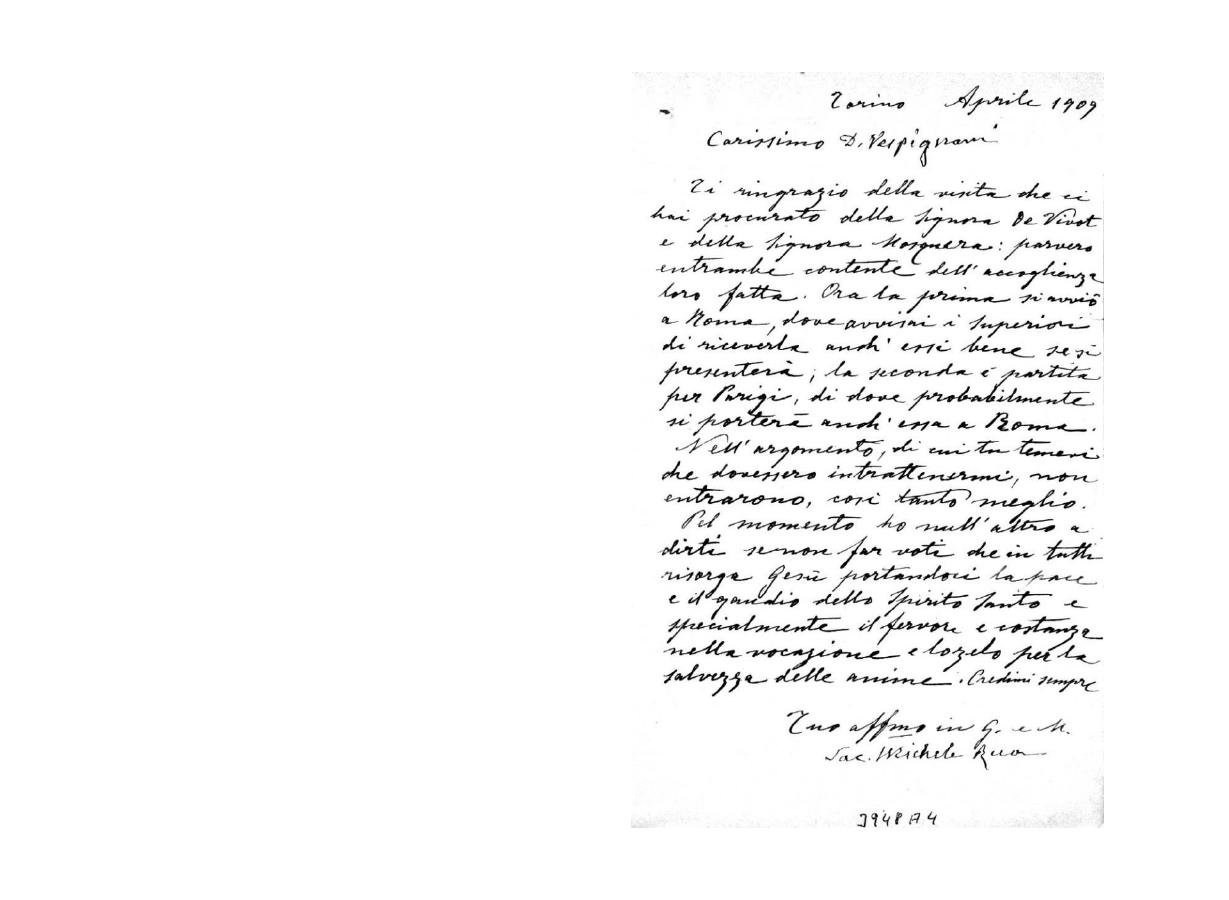 Torino Aprile 1909
Carissimo D. Vespignani
Ti ringrazio della visita che ci
hai procurato della Signora De Vivot
e della Signora Mosquera: parvero
entrambe contente dell'accoglienza
loro fatta. Ora la prima si avviò
a Roma, dove avvisai i Superiori
di riceverla anch'essi bene se si
presenterà; la seconda è partita
per Parigi, di dove probabilmente
si porterà anch'essa a Roma.
Nell'argomento, di cui tu temevi
che dovessero intrattenermi, non
entrarono, così tanto meglio.
Pel momento ho null'altro a
dirti se non far voti che in tutti
risorga Gesù portandoci la pace
e il gaudio dello Spirito Santo e
specialmente il fervore e costanza
nella vocazione e lo zelo per la
salvezza delle anime. Credimi sempre
Tuo affmo in G. e M.
Sac. Michele Rua
3948 A4